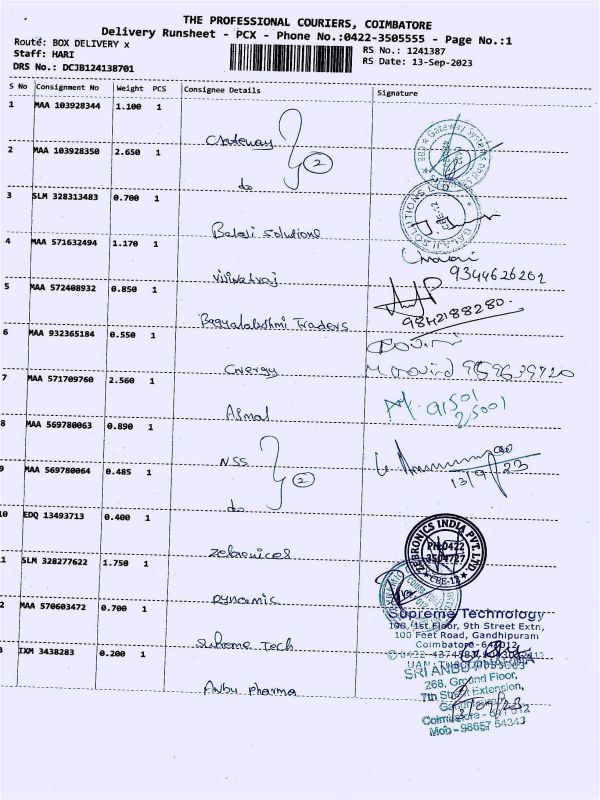 THE PROFESSIONAL COURIERS, COIMBATORE
Delivery Runsheet - PCX - Phone No.:0422-3505555 - Page No.:1
Route: BOX DELIVERY x
RS No.: 1241387
Staff: HARI
RS Date: 13-Sep-2023
DRS No.: DCJB124138701
S No Consignment No Weight PCS Consignee Details Signature
1 MAA 103928344 1.100 1
Gateway
2 MAA 103928350 2.650 1
2
do
3 SLM 328313483 0.700 1
Balaji Solutions
4 MAA 571632494 1.170 1
9344626201
5 MAA 572408932 0.850 1
Bagyalakshmi Traders
9842188280
6 MAA 932365184 0.550 1
Energy
7 MAA 571709760 2.560 1
Asmal
91501
25001
8 MAA 569780063 0.890 1
NSS
9 MAA 569780064 0.485 1
2
13/9/23
do
10 EDQ 13493713 0.400 1
Zebronices
ZEBRONICS INDIA PVT. LTD
PH:0422
3504727
CBE-12
SLM 328277622 1.750 1
Dynamic
2 MAA 570603472 0.700 1
Supreme Tech
Supreme Technology
108, 1st Floor, 9th Street Extn,
100 Feet Road, Gandhipuram
Coimbatore-641012
IXM 3438283 0.200 1
Anbu Pharma
SRI ANBU PHARMA
268, Ground Floor,
7th Street Extension,
Coimbatore - 641 012
Mob - 98657 54343